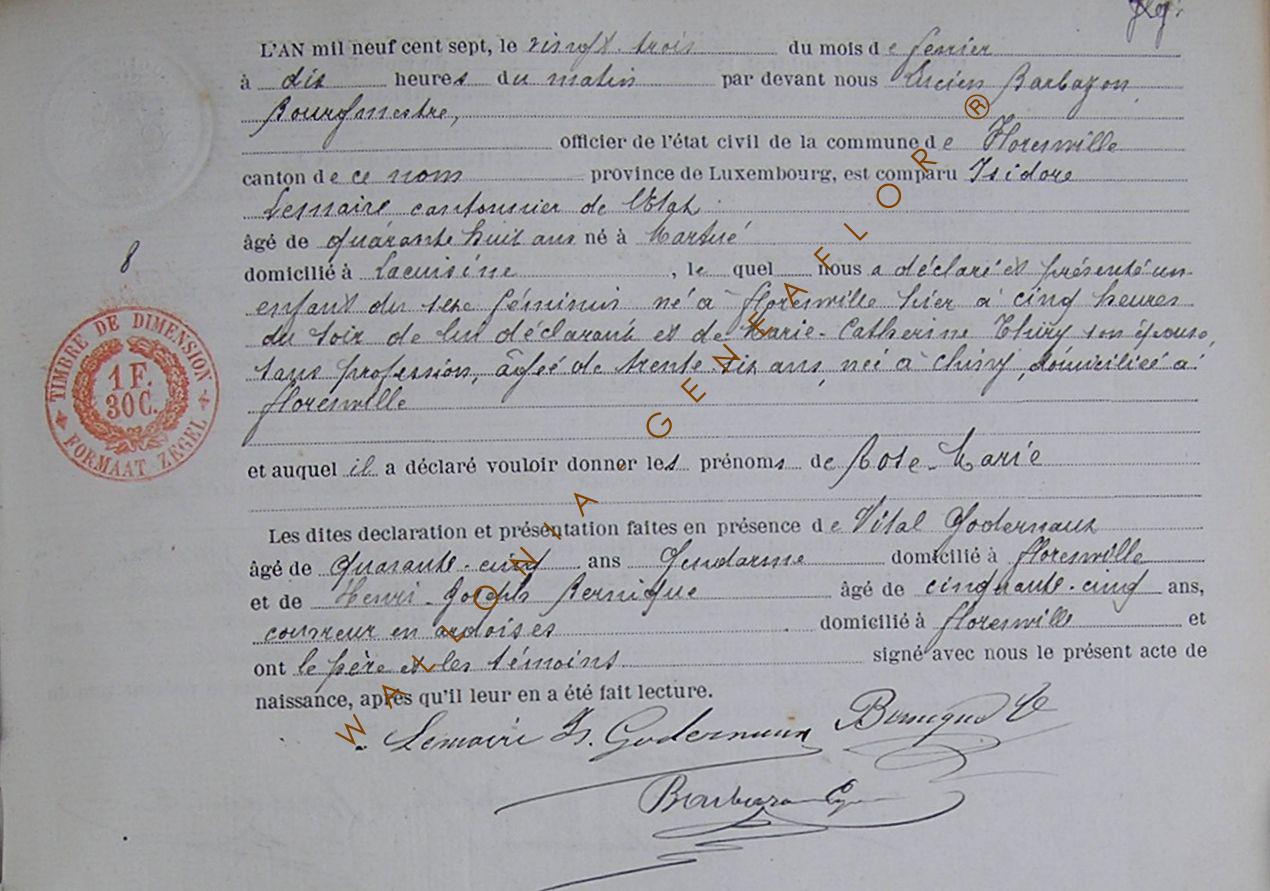 L'AN mil neuf cent sept, le vingt trois du mois de fevrier
à dix heures du matin par devant nous Lucien Barbazon,
Bourgmestre,
officier de l'état civil de la commune de Florenville
canton de ce nom province de Luxembourg, est comparu Isidore
Lemaire cantonnier de l'Etat
âgé de quarante huit ans né à Martué
8
domicilié à Lacuisine, le quel nous a déclaré et présenté un
enfant du sexe féminin né à Florenville hier à cinq heures
du soir de lui déclarant et de Marie-Catherine Thiry son épouse,
sans profession, âgée de trente six ans, née à Chiny, domiciliée à
Florenville
TIMBRE DE DIMENSION
1 F.
30 C.
FORMAAT ZEGEL
et auquel il a déclaré vouloir donner les prénoms de Rose-Marie
Les dites declaration et présentation faites en présence de Vital Godernaux
âgé de Quarante-cinq ans Gendarme domicilié à Florenville
et de Henri-Joseph Bernique âgé de cinquante-cinq ans,
couvreur en ardoises domicilié à Florenville et
ont le père et les témoins signé avec nous le présent acte de
naissance, après qu'il leur en a été fait lecture.
Lemaire Is. Godernaux Bernique
Barbazon
WALLONIA GENEAFLOR ®